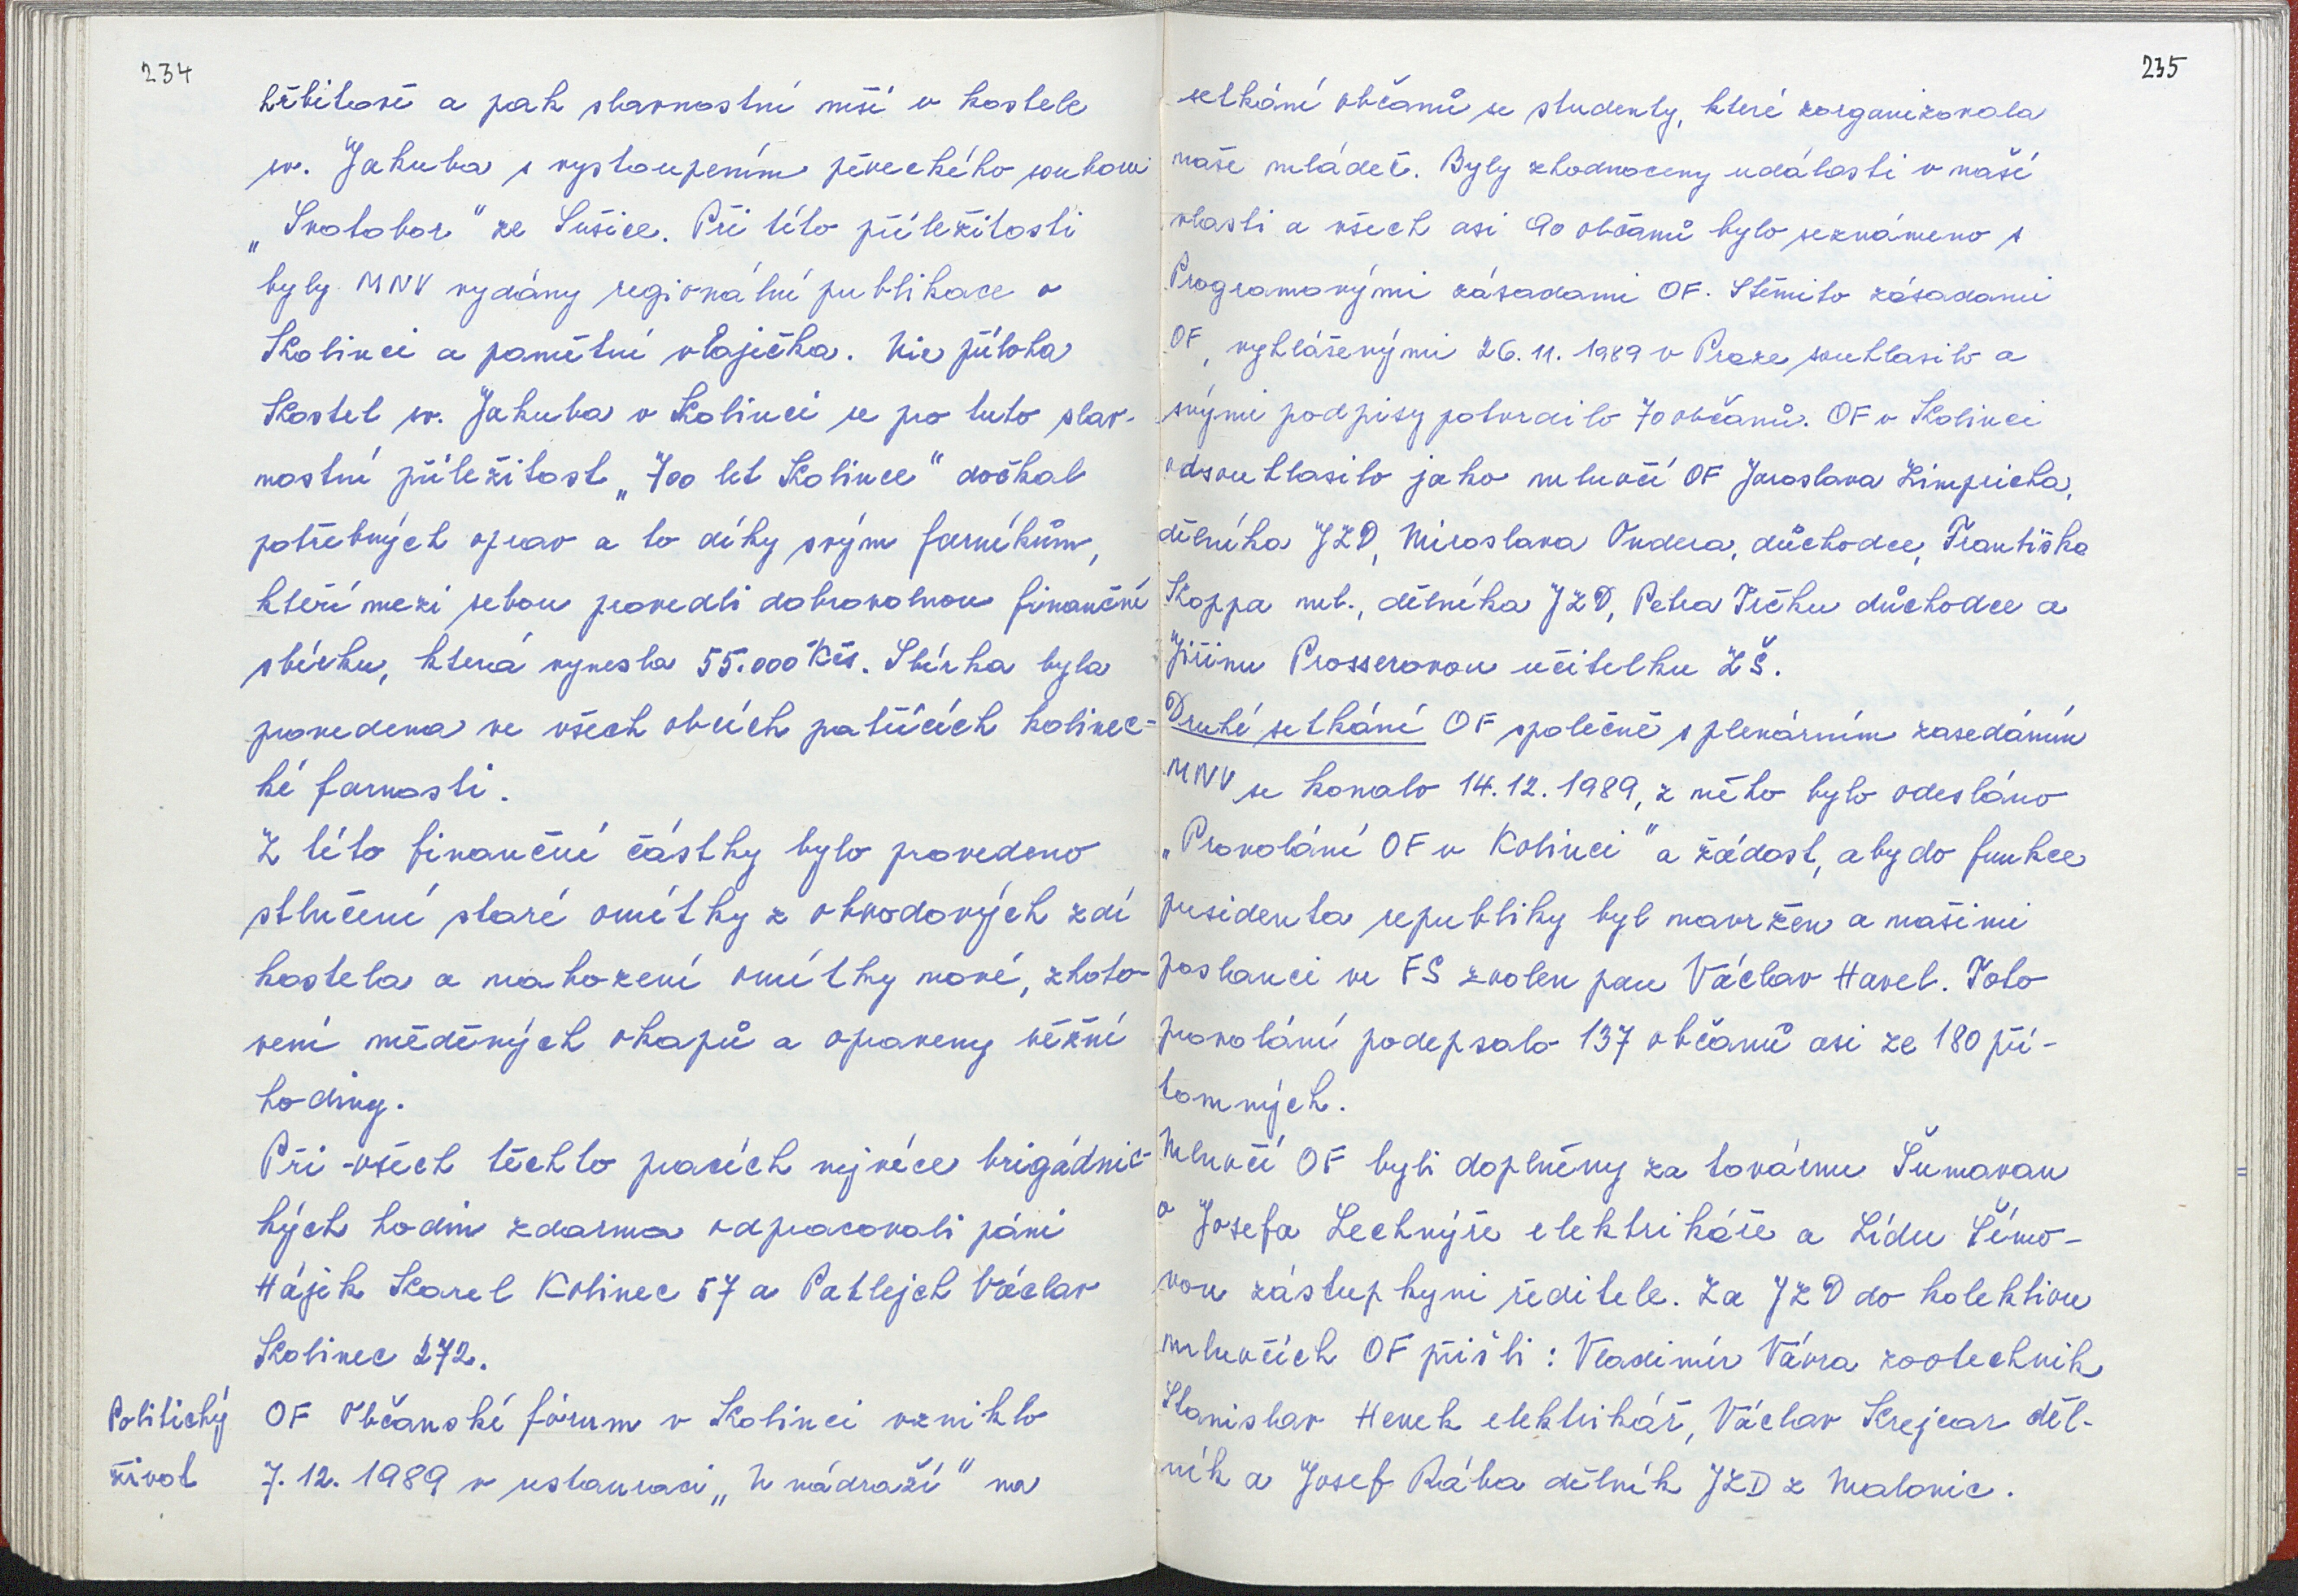 234
hřbitově a pak slavnostní mší v kostele
sv. Jakuba s vystoupením pěveckého souboru
„Svatobor" ze Sušice. Při této příležitosti
byly MNV vydány regionální publikace o
Kolinci a pamětní vlaječka. Viz příloha
Kostel sv. Jakuba v Kolinci se pro tuto slav-
nostní příležitost „700 let Kolince" dočkal
potřebných oprav a to díky svým farníkům,
kteří mezi sebou provedli dobrovolnou finanční
sbírku, která vynesla 55.000 Kčs. Sbírka byla
provedena ve všech obcích patřících kolinec=
ké farnosti.
Z této finanční částky bylo provedeno
stlučení staré omítky z obvodových zdí
kostela a nahození omítky nové, zhoto-
vení měděných okapů a opraveny věžní
hodiny.
Při všech těchto pracích nejvíce brigádnic-
kých hodin zdarma odpracovali páni
Hájek Karel Kolinec 57 a Patlejch Václav
Kolinec 272.
Politický
život
OF Občanské fórum v Kolinci vzniklo
7. 12. 1989 v restauraci „U nádraží" na
235
setkání občanů se studenty, které zorganizovala
naše mládež. Byly zhodnoceny události v naší
vlasti a všech asi 90 občanů bylo seznámeno s
Programovými zásadami OF. S těmito zásadami
OF, vyhlášenými 26. 11. 1989 v Praze souhlasilo a
svými podpisy potvrdilo 70 občanů. OF v Kolinci
odsouhlasilo jako mluvčí OF Jaroslava Limpricha,
dělníka JZD, Miroslava Ondera, důchodce, Františka
Koppa ml., dělníka JZD, Petra Trčku důchodce a
Jiřinu Prosserovou učitelku ZŠ.
Druhé setkání OF společně s plenárním zasedáním
MNV se konalo 14. 12. 1989, z něho bylo odesláno
„Provolání OF v Kolinci" a žádost, aby do funkce
presidenta republiky byl navržen a našimi
poslanci ve FS zvolen pan Václav Havel. Toto
provolání podepsalo 137 občanů asi ze 180 pří-
tomných.
Mluvčí OF byli doplněny za továrnu Šumavan
o Josefa Lechnýře elektrikáře a Lídu Šímo-
vou zástupkyni ředitele. Za JZD do kolektivu
mluvčích OF přišli: Vladimír Vávra zootechnik
Stanislav Henek elektrikář, Václav Krejcar děl-
ník a Josef Rába dělník JZD z Malonic.